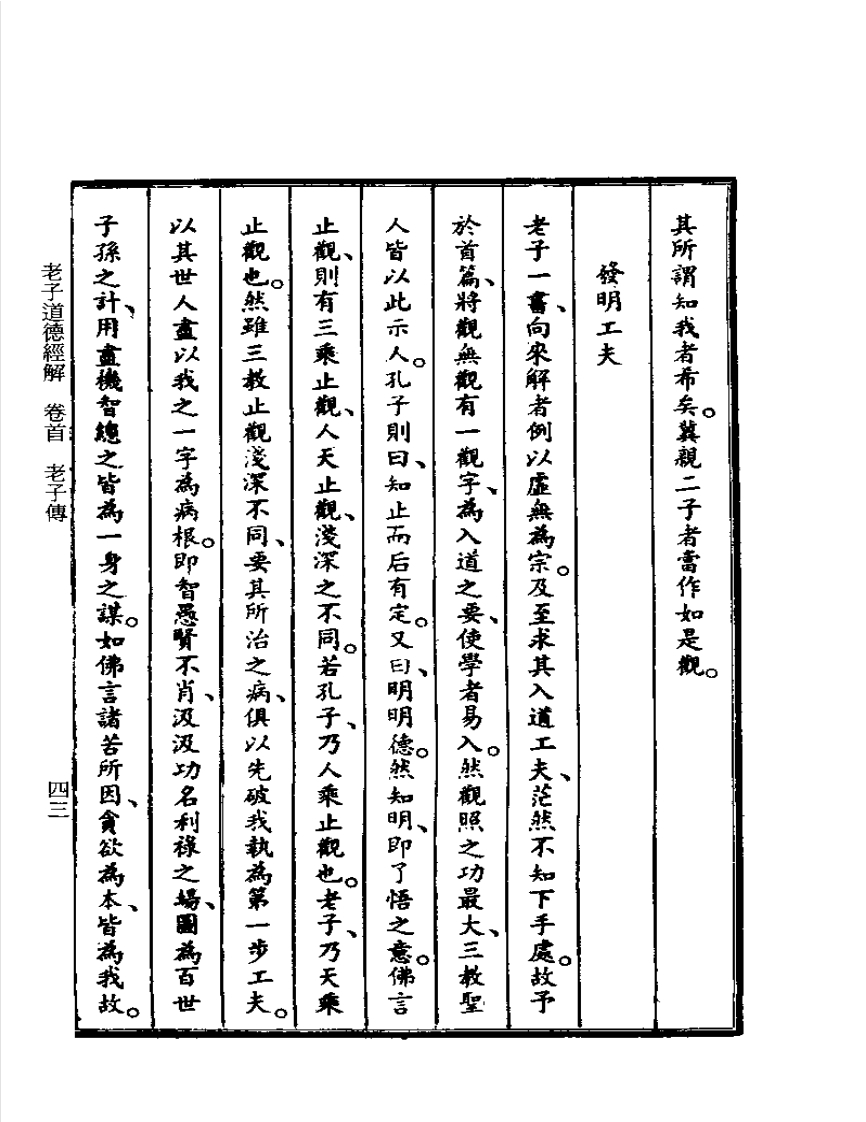 其所謂知我者希矣。冀親二子者當作如是觀。
發明工夫
老子一書、向來解者例以虛無為宗。及至求其入道工夫、茫然不知下手處。故予
於首篇、將觀無觀有一觀字、為入道之要、使學者易入。然觀照之功最大、三教聖
人皆以此示人。孔子則曰、知止而后有定。又曰、明明德。然知明、即了悟之意。佛言
止觀、則有三乘止觀、人天止觀、淺深之不同。若孔子、乃人乘止觀也。老子、乃天乘
止觀也。然雖三教止觀淺深不同、要其所治之病、俱以先破我執為第一步工夫。
以其世人盡以我之一字為病根。即智愚賢不肖、汲汲功名利祿之場、圖為百世
子孫之計、用盡機智總之皆為一身之謀。如佛言諸苦所因、貪欲為本、皆為我故。
老子道德經解 卷首 老子傳 四三